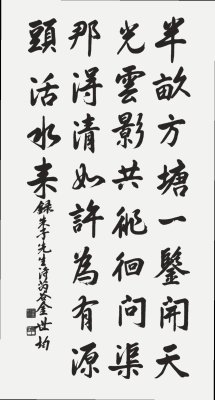 半畝方塘一鑒開天
光雲影共徘徊問渠
那得清如許為有源
頭活水来
錄朱子先生詩